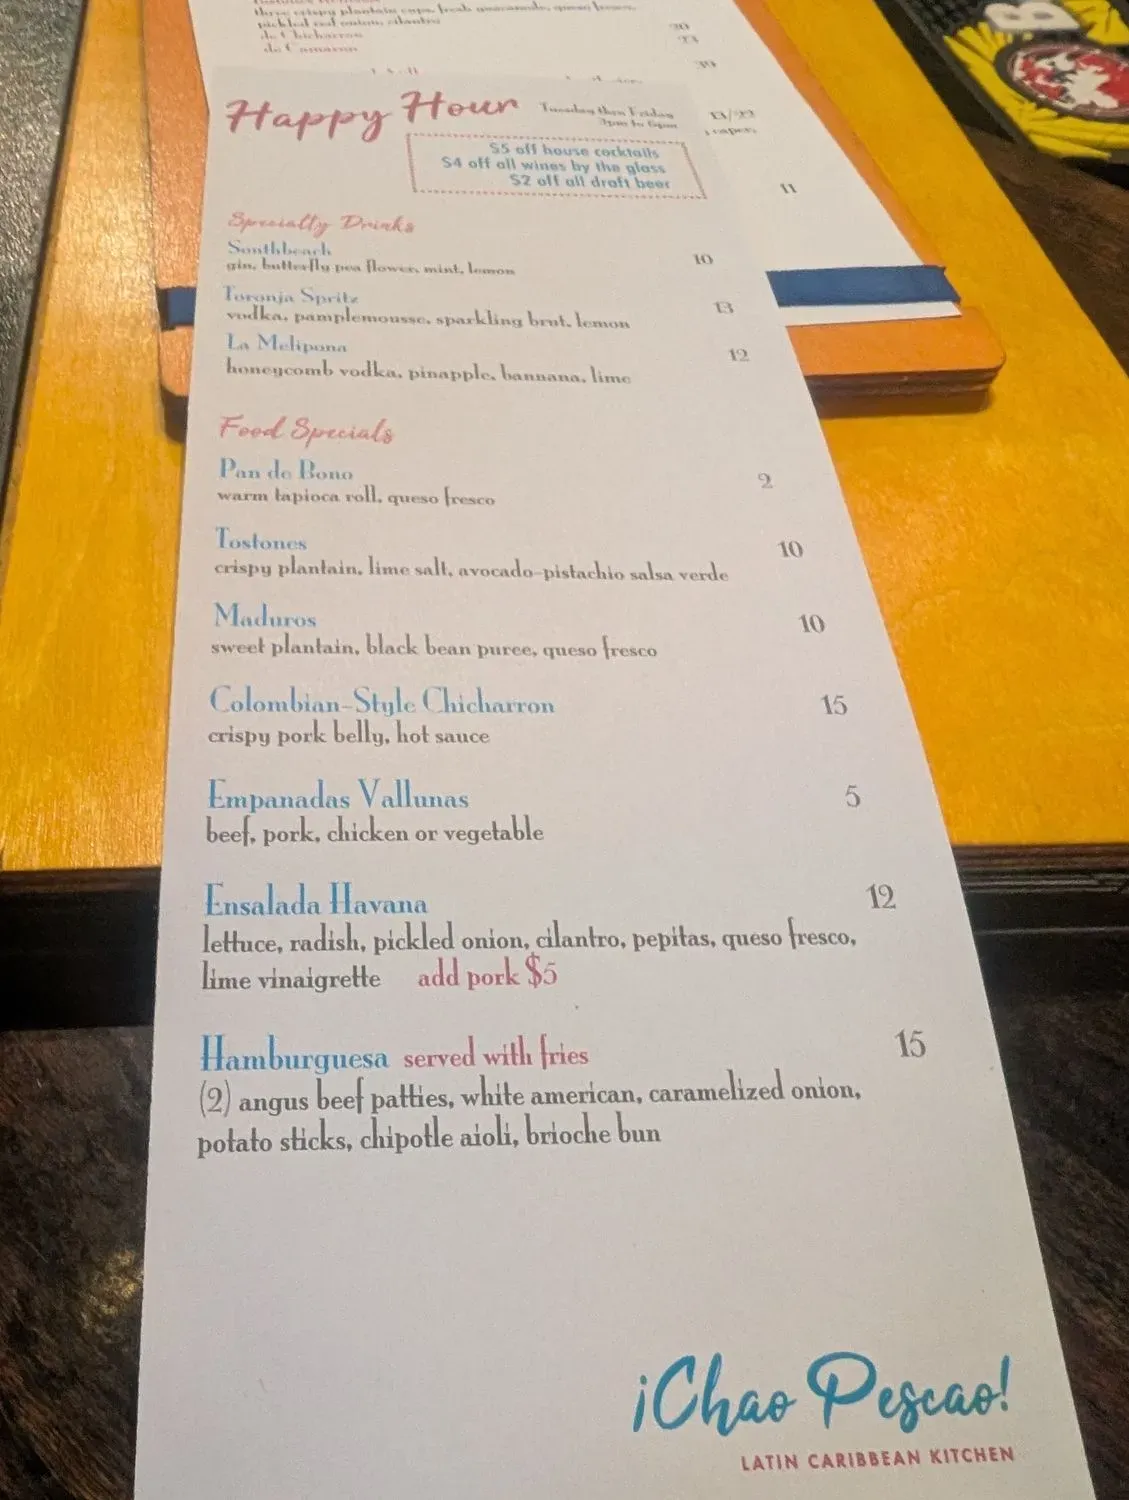 three crispy plantain cups, fresh guacamole, queso fresco,
pickled red onion, cilantro
de Chicharron 20
de Camaron 23
39
13/22
capers,
11
Happy Hour
Tuesday thru Friday
3pm to 6pm
$5 off house cocktails
$4 off all wines by the glass
$2 off all draft beer
Specialty Drinks
Southbeach 10
gin, butterfly pea flower, mint, lemon
Toronja Spritz 13
vodka, pamplemousse, sparkling brut, lemon
La Melipona 12
honeycomb vodka, pinapple, bannana, lime
Food Specials
Pan de Bono 2
warm tapioca roll, queso fresco
Tostones 10
crispy plantain, lime salt, avocado-pistachio salsa verde
Maduros 10
sweet plantain, black bean puree, queso fresco
Colombian-Style Chicharron 15
crispy pork belly, hot sauce
Empanadas Vallunas 5
beef, pork, chicken or vegetable
Ensalada Havana 12
lettuce, radish, pickled onion, cilantro, pepitas, queso fresco,
lime vinaigrette add pork $5
Hamburguesa served with fries 15
(2) angus beef patties, white american, caramelized onion,
potato sticks, chipotle aioli, brioche bun
¡Chao Pescao!
LATIN CARIBBEAN KITCHEN